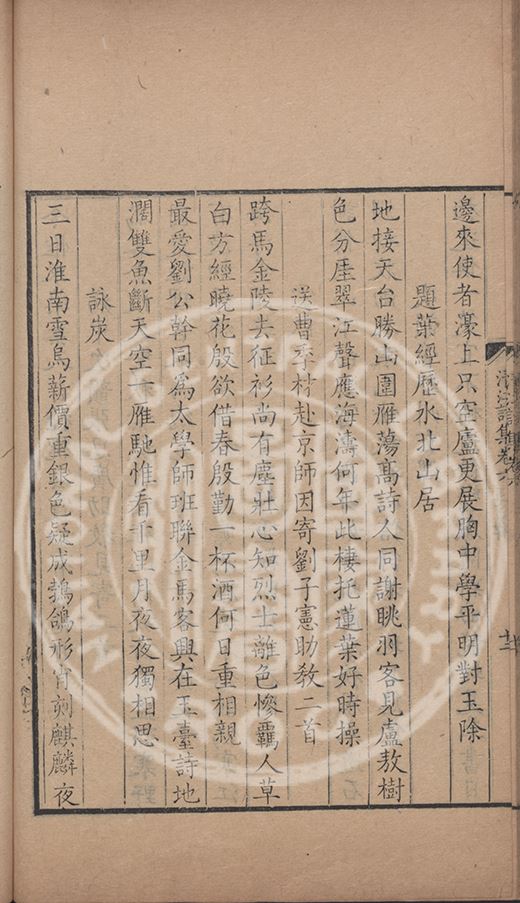 清江詩集卷六
十一
邊來使者濠上只空廬更展胸中學平明對玉除
題葉經歷水北山居
地接天台勝山圍雁蕩髙詩人同謝眺羽客見盧敖樹
色分厓翠江聲應海濤何年此棲托蓮葉好時操
送曹季材赴京師因寄劉子憲助敎二首
跨馬金陵去征衫尚有塵壯心知烈士離色慘覊人草
白方經曉花殷欲借春殷勤一杯酒何日重相親
最愛劉公幹同為太學師班聯金馬客興在玉臺詩地
濶雙魚斷天空一雁馳惟看千里月夜夜獨相思
詠炭
三日淮南雪烏薪價重銀色疑成鵓鴿形肖刻麒麟夜